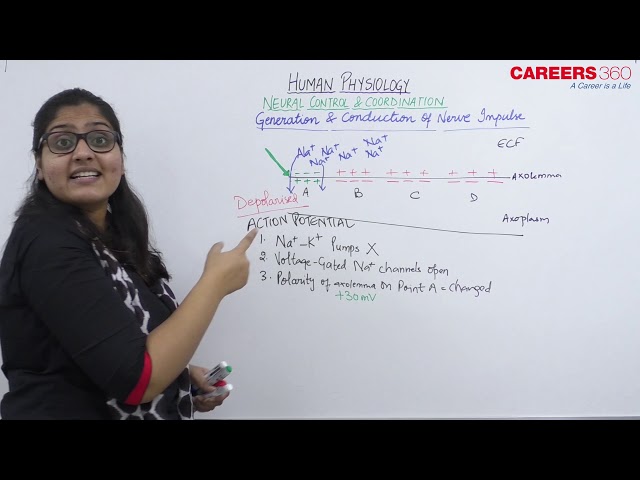 CAREERS360
A Career is a Life
HUMAN PHYSIOLOGY
NEURAL CONTROL & COORDINATION
Generation & Conduction of Nerve Impulse
ECF
Na⁺ Na⁺ Na⁺
Na⁺ Na⁺ Na⁺
- - - + + + + + + + + +
Axolemma
+ + + - - - - - - - - -
A B C D
Depolarised
Axoplasm
ACTION POTENTIAL
1. Na⁺-K⁺ Pumps X
2. Voltage-Gated Na⁺ channels open
3. Polarity of axolemma on Point A = Changed
+30mV